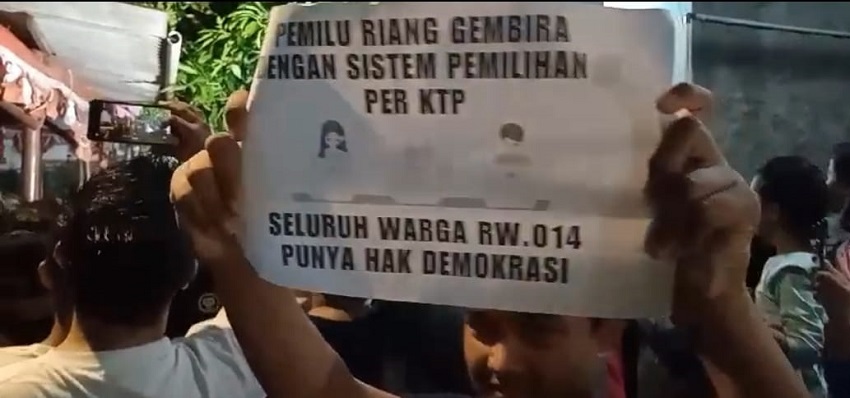 PEMILU RIANG GEMBIRA
ENGAN SISTEM PEMILIHAN
PER KTP
SELURUH WARGA RW.014
PUNYA HAK DEMOKRASI